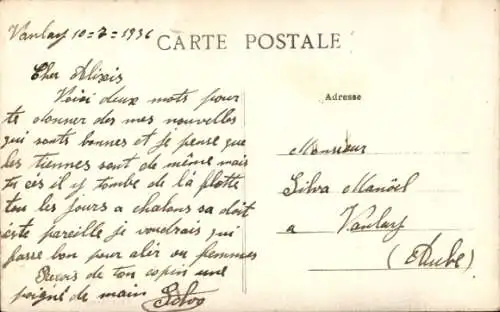 Vanlay 10=2=1936
CARTE POSTALE
Cher Alixis
Voici deux mots pour
te donner des mes nouvelles
qui sonts bonnes et je pense que
les tiennes sont de même mais
tu cés il y tombe de la flotte
tou les jours a chalons sa doit
éste pareille je voudrais qui
fasse bon pour alér ou femmes
Recois de ton copin une
poigné de main Silva
Adresse
Monsieur
Silva Manöel
a Vanlay
(Aube)